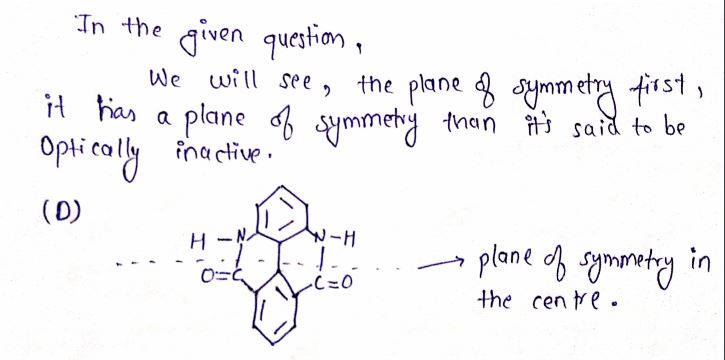 In the given question,
We will see, the plane of symmetry first,
it has a plane of symmetry than it's said to be
Optically inactive.
(D)
H - N N - H
O=C C=O
plane of symmetry in
the centre.